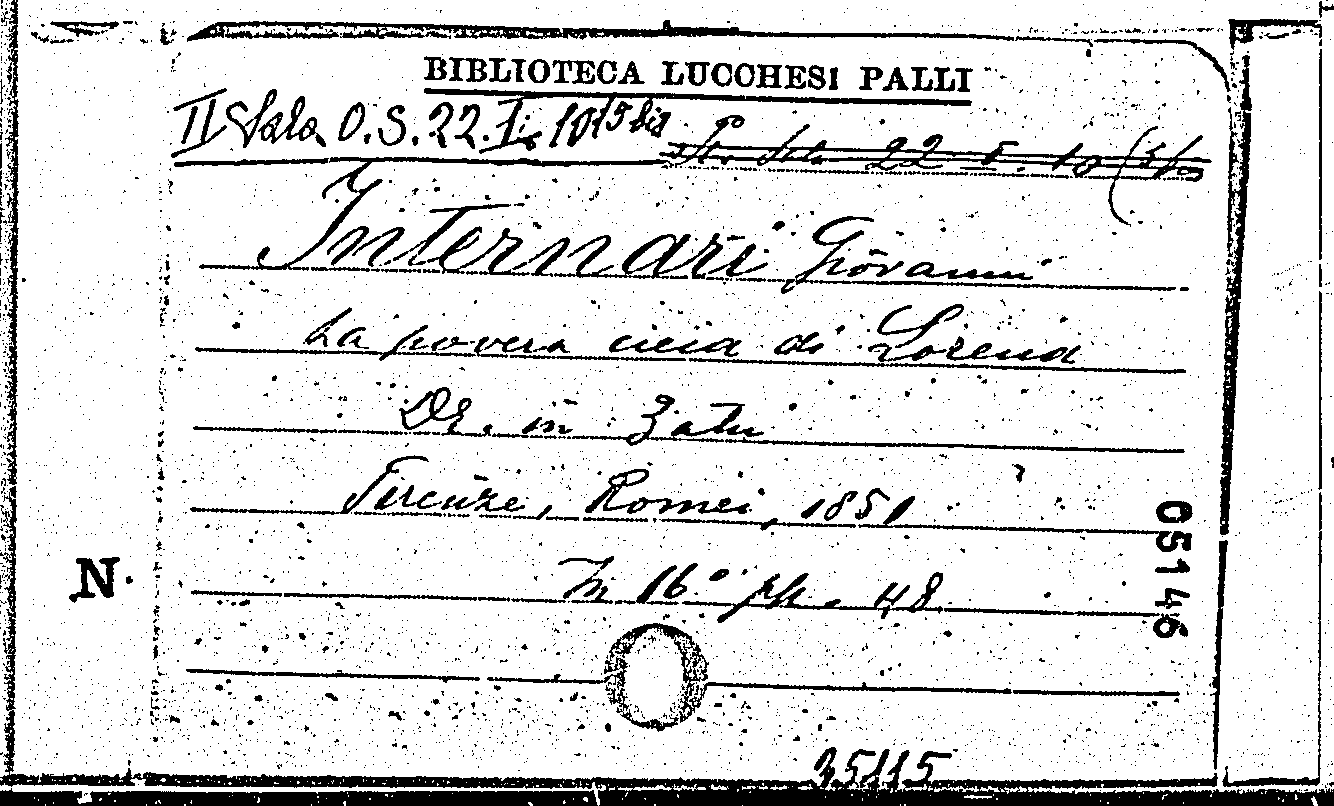 BIBLIOTECA LUCCHESI PALLI
II Sala O.S. 22. I. 10 15 bis
22 I. 10 (5
Internari Giovanni
La povera cieca di Lorena
Dr. in 3 atti
Firenze, Romei, 1851
In 16° pp. 48
N.
05146
35115